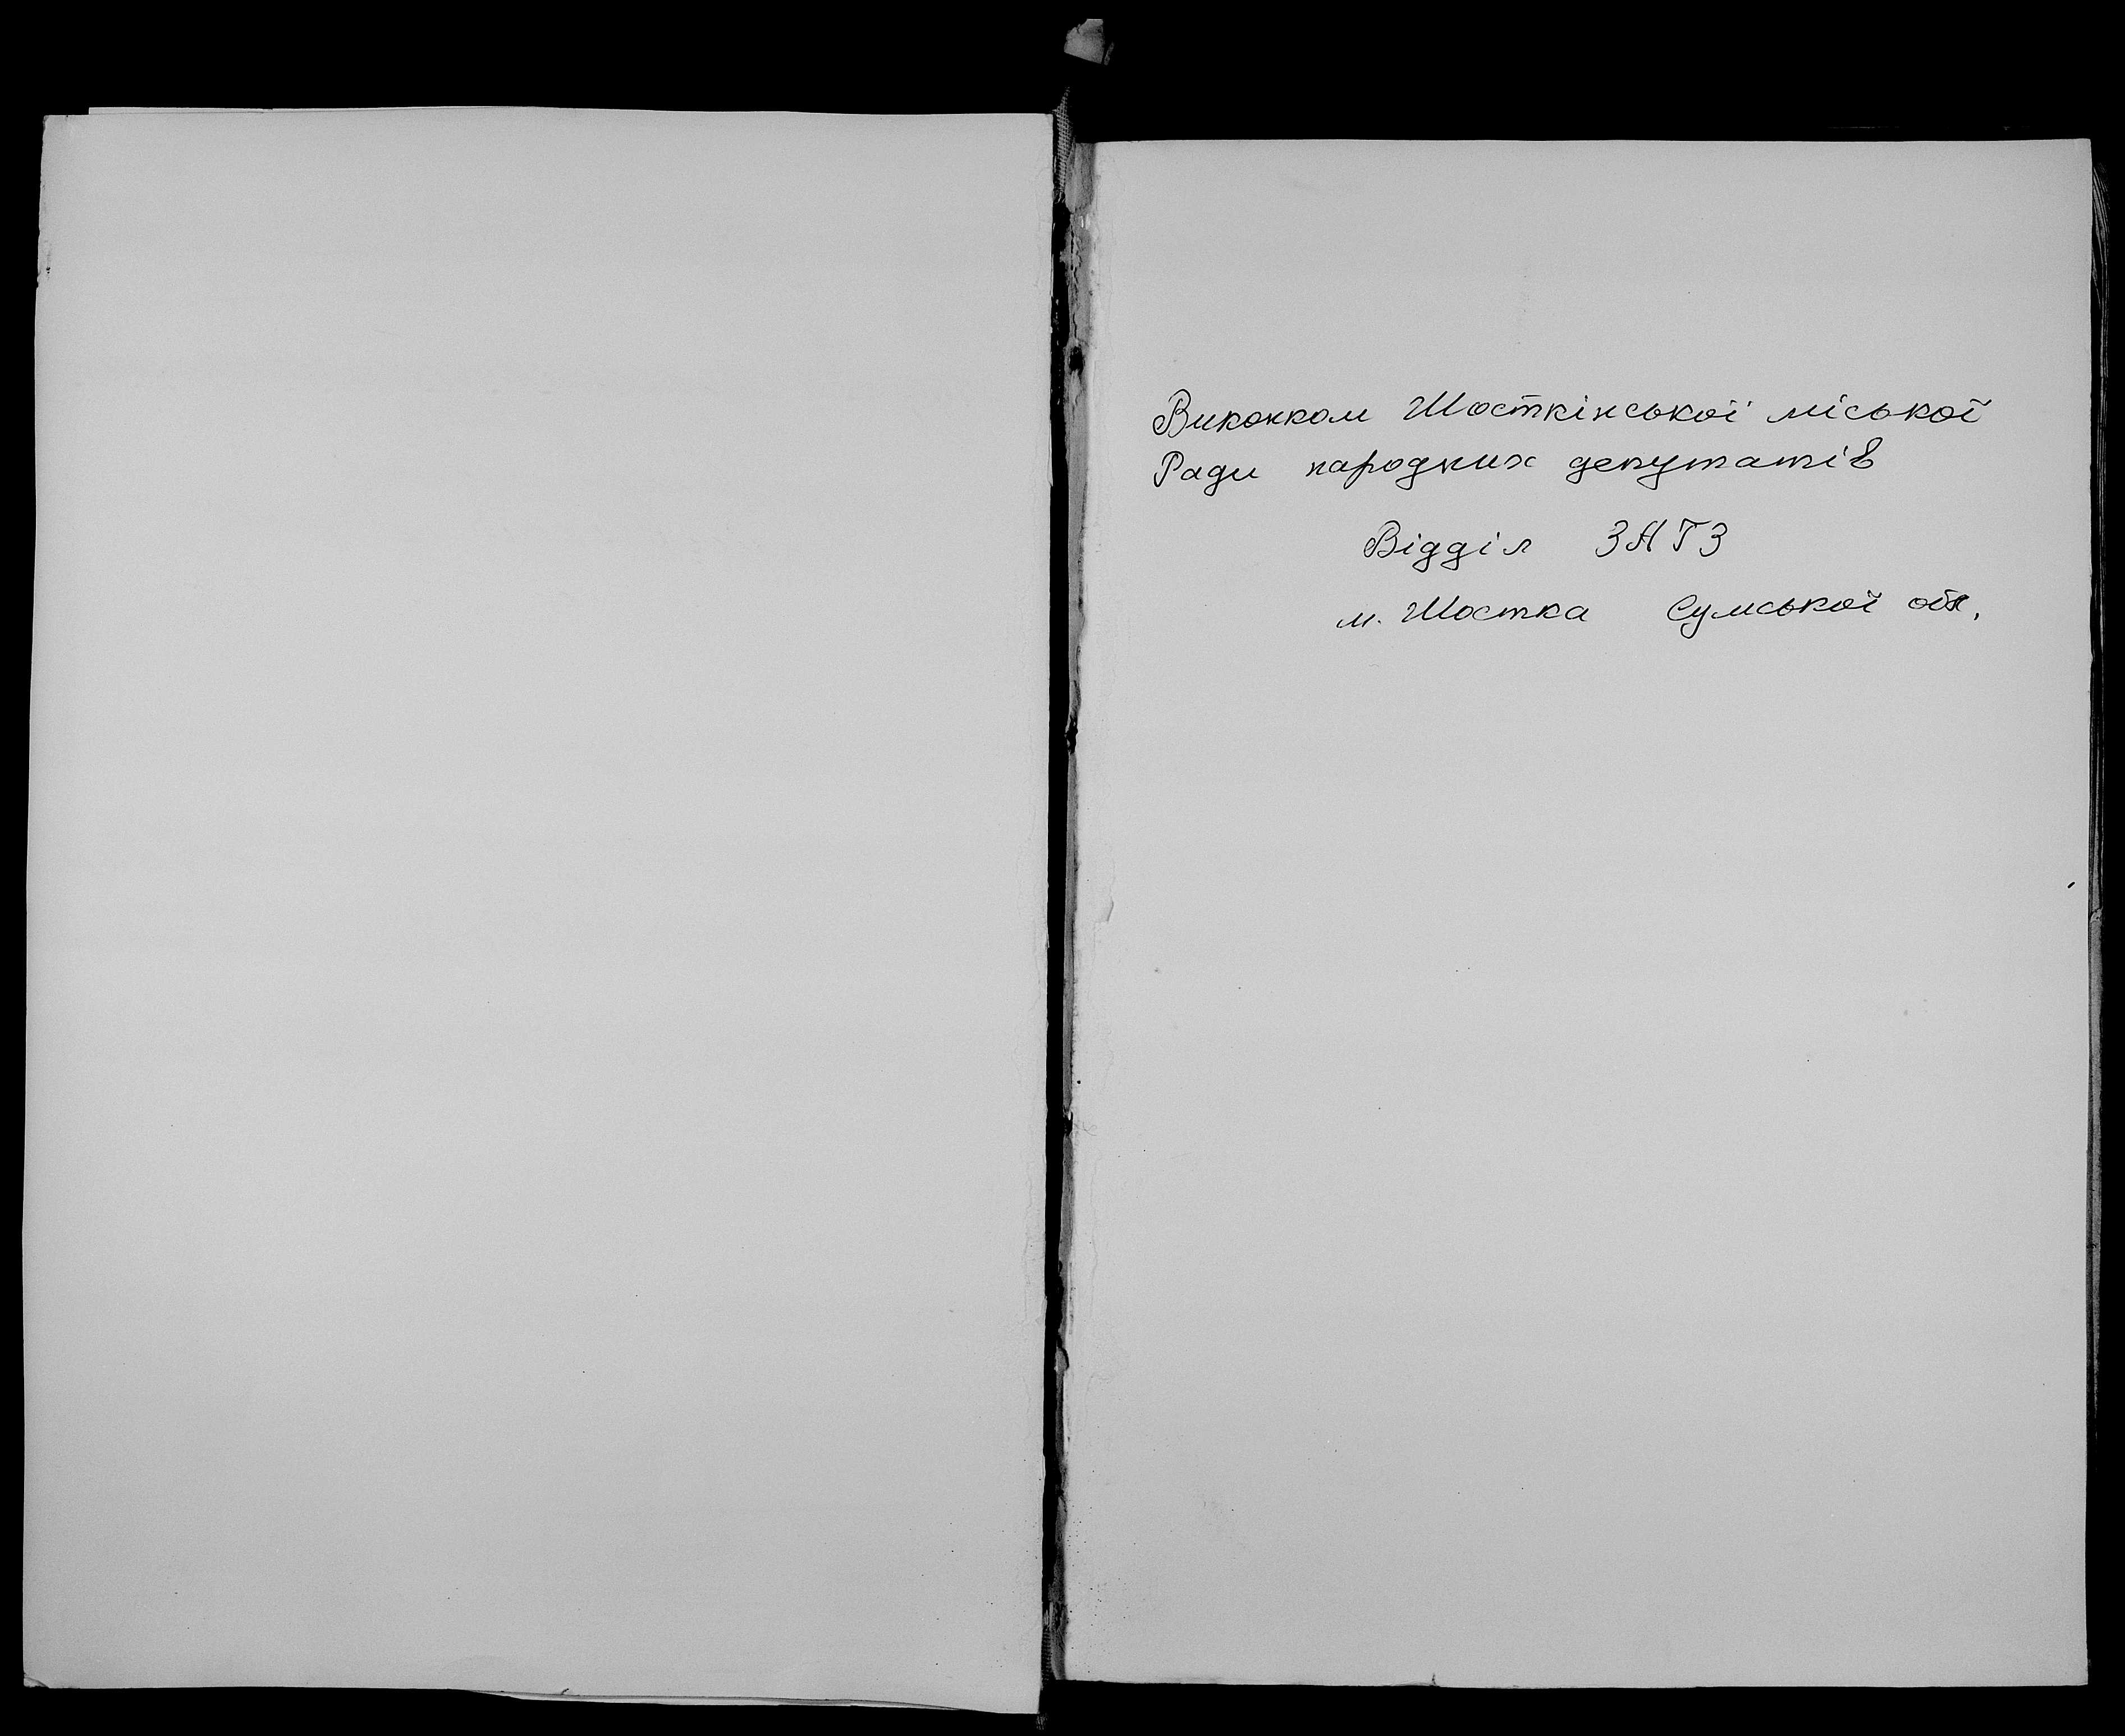 Виконком Шосткінської міської
Ради народних депутатів
Відділ ЗАГЗ
м. Шостка Сумської обл.